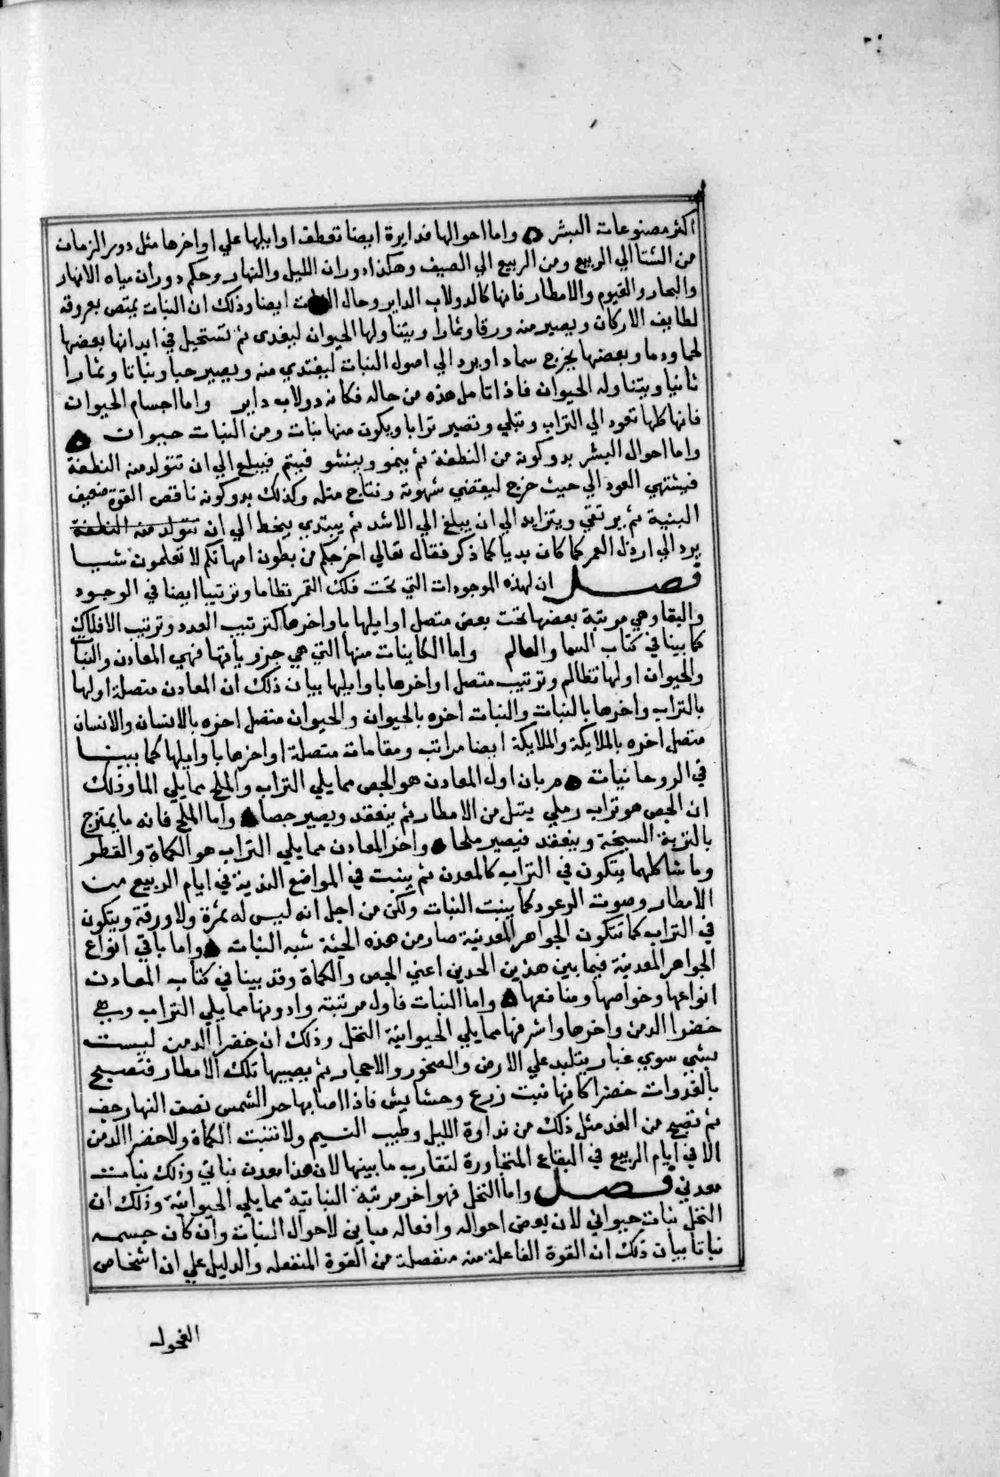 اكثر مصنوعات البشر ه واما احوالها فدايرة ايضا تعطف اوايلها علي اواخرها مثل دور الزمان
من الشتا الي الربيع ومن الربيع الي الصيف وهكذا دوران الليل والنهار وحكم دوران مياه الانهار
والبحار والغيوم والامطار فانها كالدولاب الداير وحال النبات ايضا وذلك ان النبات يمتص بعروقه
لطايف الاركان ويصير منه ورقا وثمارا ويتناولها الحيوان ليغدى ثم تستحيل في ابدانها بعضها
لحما ودما وبعضها يخرج سمادا ويرد الي اصول النبات ليغتدي منه ويصير حبا ونباتا وثمارا
ثانيا ويتناوله الحيوان فاذا تامل هذه من حاله فكانه دولاب داير واما اجسام الحيوان
فانها كلها تعود الي التراب وتبلي وتصير ترابا ويكون منها نبات ومن النبات حيوان ه
واما احوال البشر بدو كونه من النطفة ثم ينمو وينشو فيتم فيبلغ الي ان تتولد منه النطفة
فيشتهي العود الي حيث خرج ليقضي شهوته ونتاج مثله وكذلك بدو كونه ناقص القوة ضعيف
البنية ثم يرتقي ويتزايد الي ان يبلغ الي الاشد ثم يبتدي ينحط الي ان تتولد منه النطفة
يرد الي ارذل العمر كما كان بديا كما ذكر فقال تعالي اخرجكم من بطون امهاتكم لا تعلمون شيا
فصل ان لهذه الموجودات التي تحت فلك القمر نظاما وترتيبا ايضا في الوجود
والبقا وهي مرتبة بعضها تحت بعض متصل اوايلها باواخرها كترتيب العدد وترتيب الافلاك
كما بينا في كتاب السما والعالم واما الكاينات منها التي هي جزو يافتها فهي المعادن والنبات
والحيوان اولها نظالم وترتيب متصل اواخرها باوايلها بيان ذلك ان المعادن متصلة اولها
بالتراب واخرها بالنبات والنبات اخره بالحيوان والحيوان متصل اخره بالانسان والانسان
متصل اخره بالملايكة والملايكة ايضا مراتب ومقامات متصلة اواخرها باوايلها كما بينا
في الروحانيات ه مربان اول المعادن هو الجص مما يلي التراب والملح مما يلي الما وذلك
ان الجص هو تراب رملي يبتل من الامطار ثم ينعقد ويصير جصا ه واما الملح فانه ما يمتزج
بالتربة السبخة وينعقد فيصير ملحا ه واخر المعادن مما يلي التراب هو الكماة والفطر
وما شاكلهما يتكون في التراب كالمعدن ثم ينبت في المواضع الندية في ايام الربيع من
الامطار وصوت الرعود كما ينبت النبات ولكن من اجل انه ليس له ثمرة ولا ورقة ويتكون
في التراب كما تتكون الجواهر المعدنية صار من هذه الجهة شبه النبات ه واما باقي انواع
الجواهر المعدنية فيما بين هذين الحدين اعني الجص والكماة وقد بينا في كتاب المعادن
انواعها وخواصها ومنافعها ه واما النبات فاول مرتبته وادونها مما يلي التراب وهي
خضرا الدمن واخرها واشرفها مما يلي الحيوانية النخل وذلك ان خضرا الدمن ليست
بشي سوي غبار يتلبد علي الارض والصخور والاحجار ثم يصيبها تلك الامطار فتصبح
بالغدوات خضرا كانها نبت زرع وحشايش فاذا اصابها حر الشمس نصف النهار جف
ثم تصبح من الغد مثل ذلك من نداوة الليل وطيب النسيم ولا تنبت الكماة ولا خضرا الدمن
الا في ايام الربيع في البقاع المتجاورة لتقارب ما بينها لان هذا معدن نباتي وذلك نبات
معدني فصل واما النخل فهو اخر مرتبة النباتية مما يلي الحيوانية وذلك ان
النخل نبات حيواني لان بعض احواله وافعاله مباين لاحوال النبات وان كان جسمه
نباتا بيان ذلك ان القوة الفاعلة منه منفصلة من القوة المنفعله والدليل علي ان اشخاص
الفحول